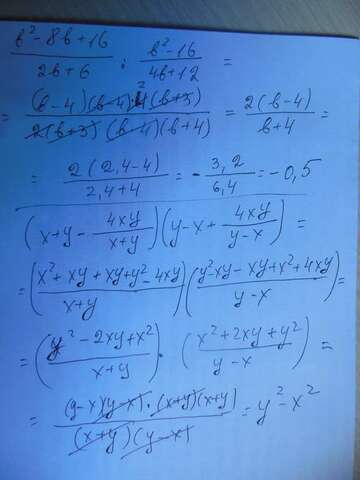 (в²-8в+16)/(2в+6) : (в²-16)/(4в+12) =
= ((в-4)(в-4) 4² (в+3))/(2(в+3) (в-4)(в+4)) = 2(в-4)/(в+4) =
= 2(2,4-4)/(2,4+4) = - 3,2/6,4 = -0,5
(x+y - 4xy/(x+y)) (y-x + 4xy/(y-x)) =
= ((x²+xy+xy+y²-4xy)/(x+y)) ((y²-xy-xy+x²+4xy)/(y-x)) =
= ((y²-2xy+x²)/(x+y)) · ((x²+2xy+y²)/(y-x)) =
= ((y-x)(y-x) · (x+y)(x+y))/((x+y)(y-x)) = y²-x²